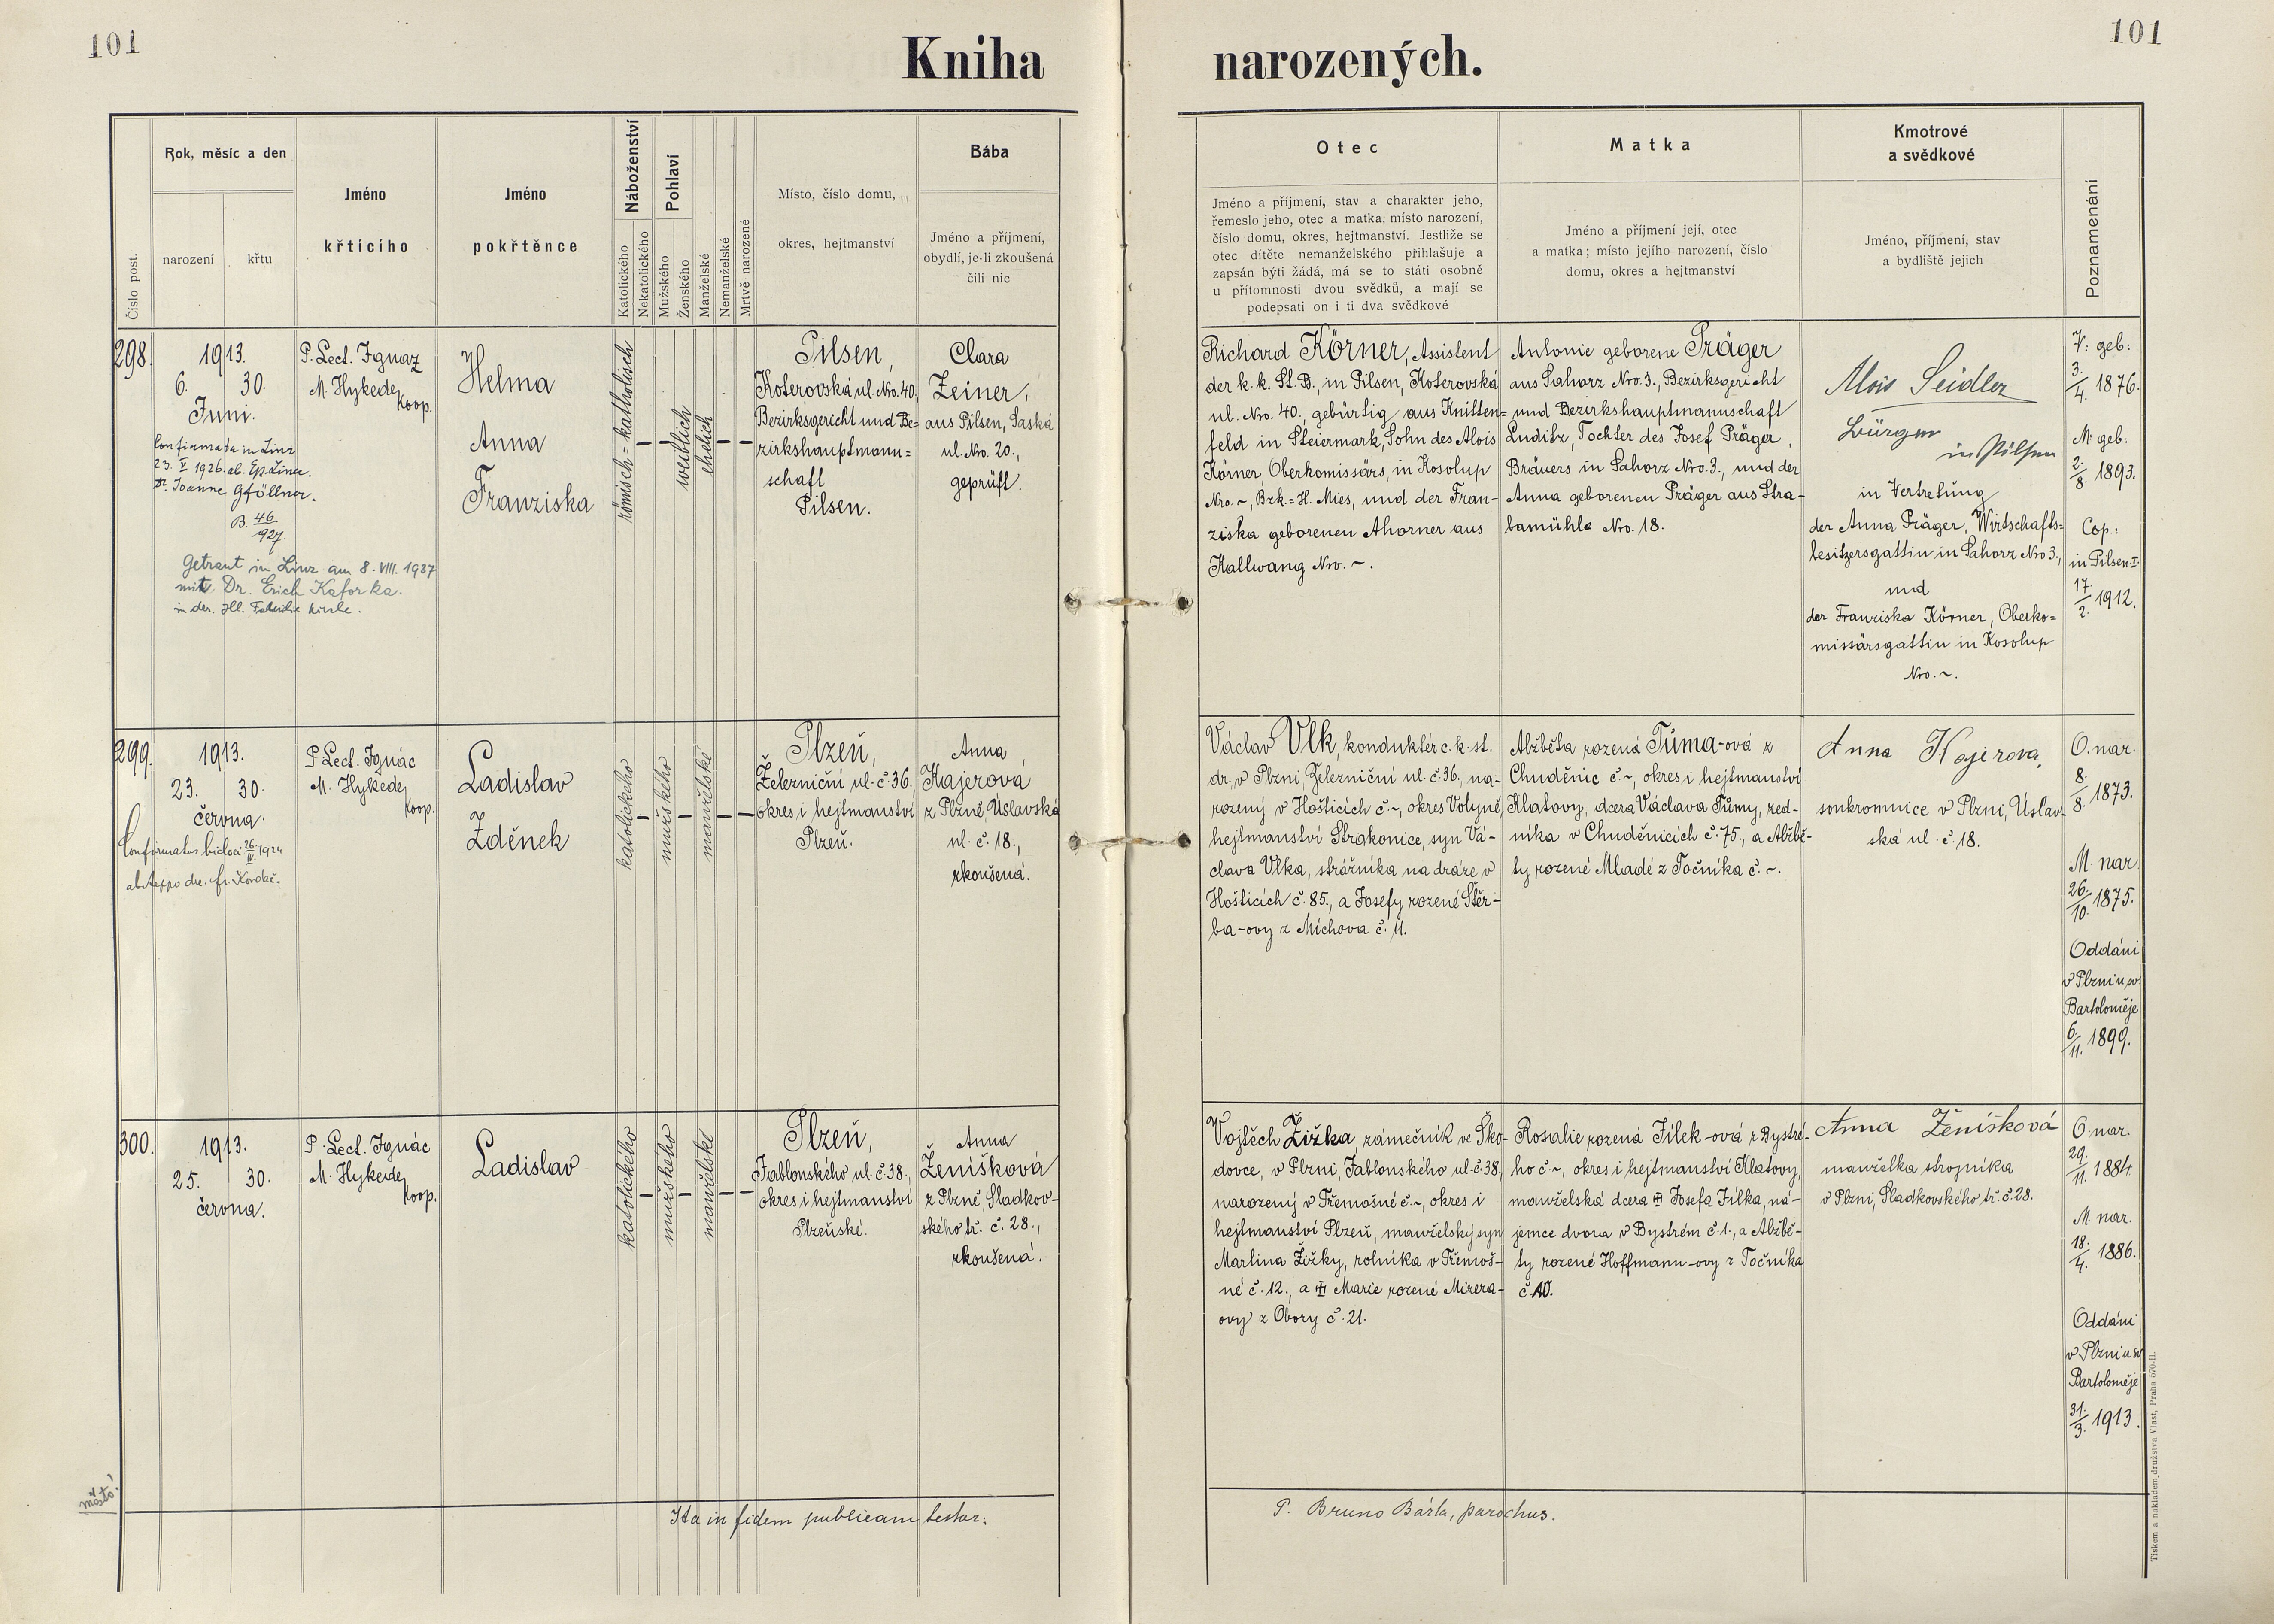 101
Kniha narozených.
101
Číslo post.
Rok, měsíc a den
narození
křtu
Jméno
křticiho
Jméno
pokřtěnce
Náboženství
Katolického
Nekatolického
Pohlaví
Mužského
Ženského
Manželské
Nemanželské
Mrtvě narozené
Místo, číslo domu,
okres, hejtmanství
Bába
Jméno a příjmení,
obydlí, je-li zkoušená
čili nic
Otec
Jméno a příjmení, stav a charakter jeho,
řemeslo jeho, otec a matka, místo narození,
číslo domu, okres, hejtmanství. Jestliže se
otec dítěte nemanželského přihlašuje a
zapsán býti žádá, má se to státi osobně
u přítomnosti dvou svědků, a mají se
podepsati on i ti dva svědkové
Matka
Jméno a příjmení její, otec
a matka; místo jejího narození, číslo
domu, okres a hejtmanství
Kmotrové
a svědkové
Jméno, příjmení, stav
a bydliště jejich
Poznamenání
298.
1913.
6. 30.
Juni.
Confirmata in Linz
23. V 1926 ab. Ep. Linc.
Dr. Joanne Gföllner.
B. 46/927
Getraut in Linz am 8. VIII. 1937
mit Dr. Erich Kaforka.
in der Hl. Familie Kirche.
P. Lect. Ignaz
M. Hykede,
koop.
Helma
Anna
Franziska
römisch=katholisch
weiblich
ehelich
Pilsen,
Koterovská ul. Nro. 40,
Bezirksgericht und Be=
zirkshauptmann=
schaft
Pilsen.
Clara
Zeiner,
aus Pilsen, Saská
ul. No. 20.,
geprüft.
Richard Körner, Assistent
der k. k. St. B., in Pilsen, Koterovská
ul. Nro. 40., gebürtig aus Knittel=
feld in Steiermark, Sohn des Alois
Körner, Oberkomissärs, in Kosolup
Nro. ~, Bzk=H. Mies, und der Fran-
ziska geborenen Ahorner aus
Kallwang Nro. ~.
Antonie geborene Präger
aus Sahorz Nro. 3., Bezirksgericht
und Bezirkshauptmannschaft
Luditz, Tochter des Josef Präger,
Bräuers in Sahorz Nro. 3., und der
Anna geborenen Präger aus Stra-
bamühle Nro. 18.
Alois Seidler
Bürger
in Pilsen
in Vertretung
der Anna Präger, Wirtschafts=
besitzersgattin in Sahorz Nro 3.,
und
der Franziska Körner, Oberko=
missärsgattin in Kosolup
Nro. ~.
V: geb:
3./4. 1876.
M: geb:
2./8. 1893.
Cop.:
in Pilsen I.
17/2. 1912.
299.
1913.
23. 30.
června.
Confirmatus 26./IV. 1924
P. Lect. Ignác
M. Hykede,
koop.
Ladislav
Zděnek
katolického
mužského
manželské
Plzeň,
Železniční ul. č. 36.,
okres i hejtmanství
Plzeň.
Anna
Kajerová
z Plzně, Úslavská
ul. č. 18.,
zkoušená.
Václav Vlk, konduktér c. k. st.
dr., v Plzni, Železniční ul. č. 36, na-
rozený v Hošticích č. ~, okres Volyně,
hejtmanství Strakonice, syn Vá-
clava Vlka, strážníka na dráze v
Hošticích č. 85., a Josefy rozené Štěr-
ba-ovy z Míchova č. 11.
Alžběta rozená Tůma-ová z
Chuděnic č. ~, okres i hejtmanství
Klatovy, dcera Václava Tůmy, zed-
níka v Chuděnicích č. 75., a Alžbě-
ty rozené Mladé z Točníka č. ~.
Anna Kajerova,
soukromnice v Plzni, Úslav-
ská ul. č. 18.
O. nar.
8./8. 1873.
M. nar.
26./10. 1875.
Oddáni
v Plzni u sv.
Bartoloměje
6./11. 1899.
300.
1913.
25. 30.
června.
P. Lect. Ignác
M. Hykede,
koop.
Ladislav
katolického
mužského
manželské
Plzeň,
Jablonského ul. č. 38.,
okres i hejtmanství
Plzeňské.
Anna
Ženíšková
z Plzně, Sladkov-
ského tř. č. 28.,
zkoušená.
Vojtěch Žižka, zámečník ve Ško-
dovce, v Plzni, Jablonského ul. č. 38,
narozený v Třemošné č. ~, okres i
hejtmanství Plzeň, manželský syn
Martina Žižky, rolníka v Třemoš-
né č. 12., a Marie rozené Mizera-
ovy z Obory č. 21.
Rosalie rozená Jílek-ová z Bystré-
ho č. ~, okres i hejtmanství Klatovy,
manželská dcera Josefa Jílka, ná-
jemce dvora v Bystrém č. 1., a Alžbě-
ty rozené Hoffmann-ovy z Točníka
č. 10.
Anna Ženíšková
manželka strojníka
v Plzni, Sladkovského tř. č. 28.
O. nar.
29./11. 1884.
M. nar.
18./4. 1886.
Oddáni
v Plzni u sv.
Bartoloměje
31./3. 1913.
Ita in fidem publicam testor:
P. Bruno Bárta, parochus.
Tiskem a nákladem družstva Vlast, Praha 570-II.